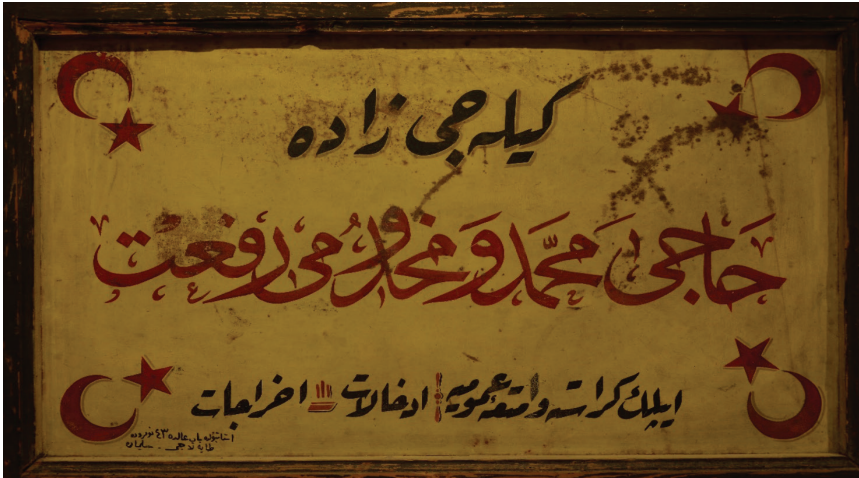 كیله جی زاده
حاجی محمد و مخدومی رفعت
ایپلك كراسته و امتعۀ عمومیه ادخالات اخراجات
استانبول باب عالیده ٤٣
سلیمان